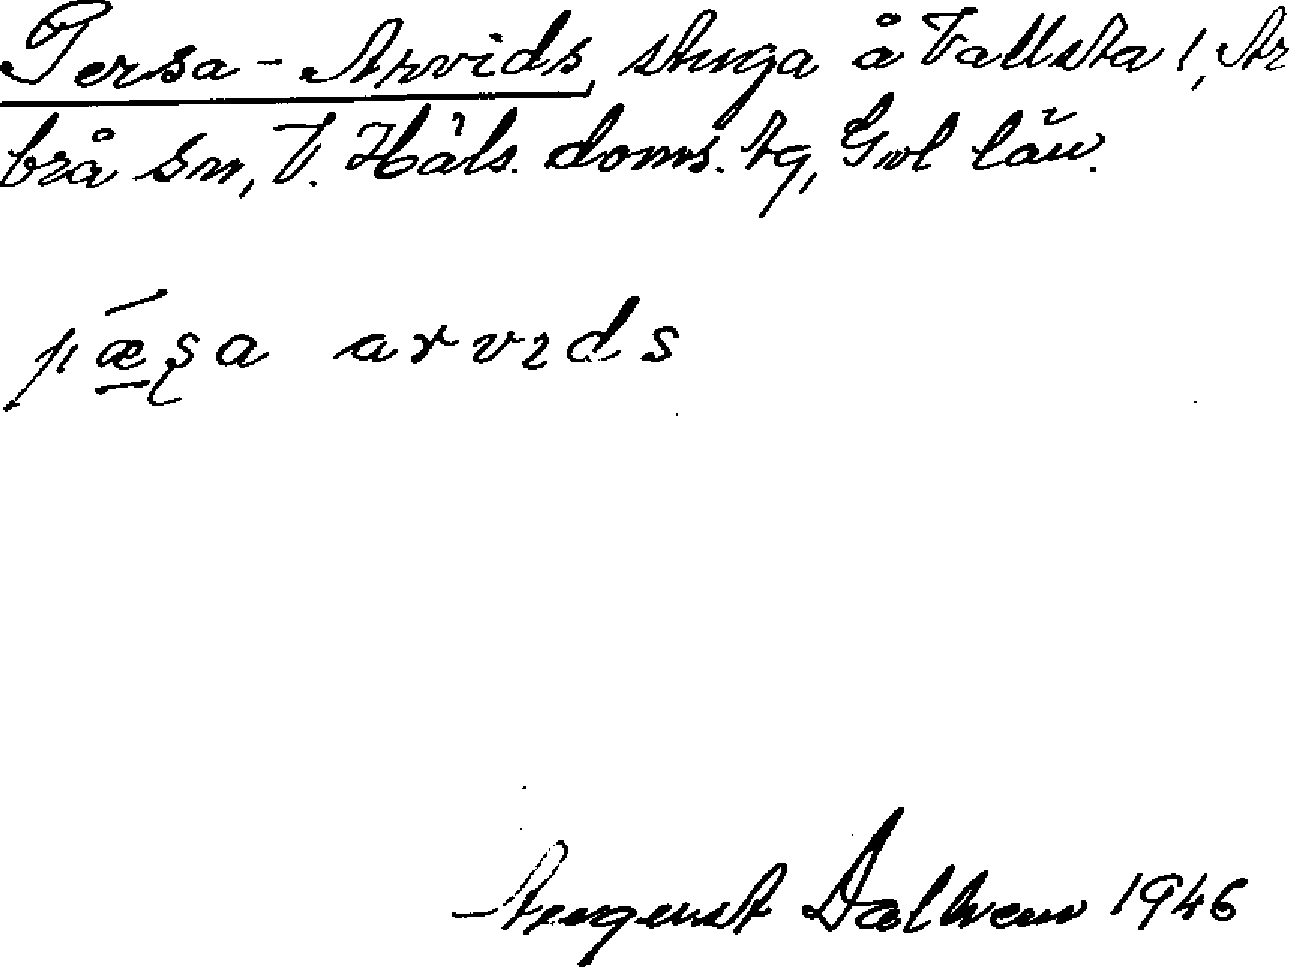 Persa-Arvids, stuga å Vallsta 1, Ar
brå sn, V. Häls. doms. tg, Gvl län.
pǽ̠ʂa arvɪds
August Dalhem 1946